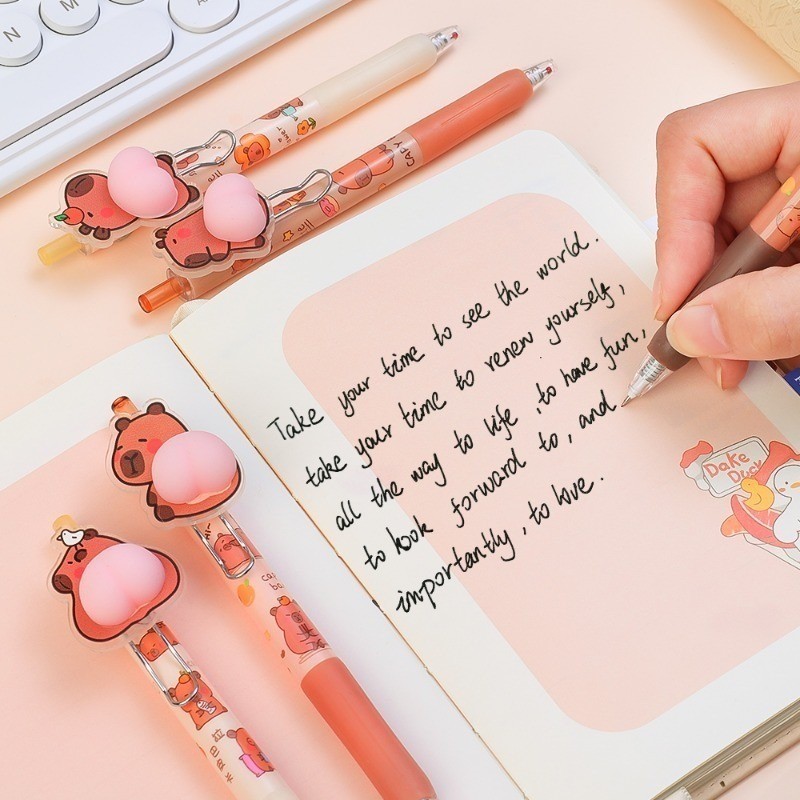 N
M
Take your time to see the world.
take your time to renew yourself,
all the way to life, to have fun,
to look forward to, and
importantly, to love.
Dake
Duck
CAPY